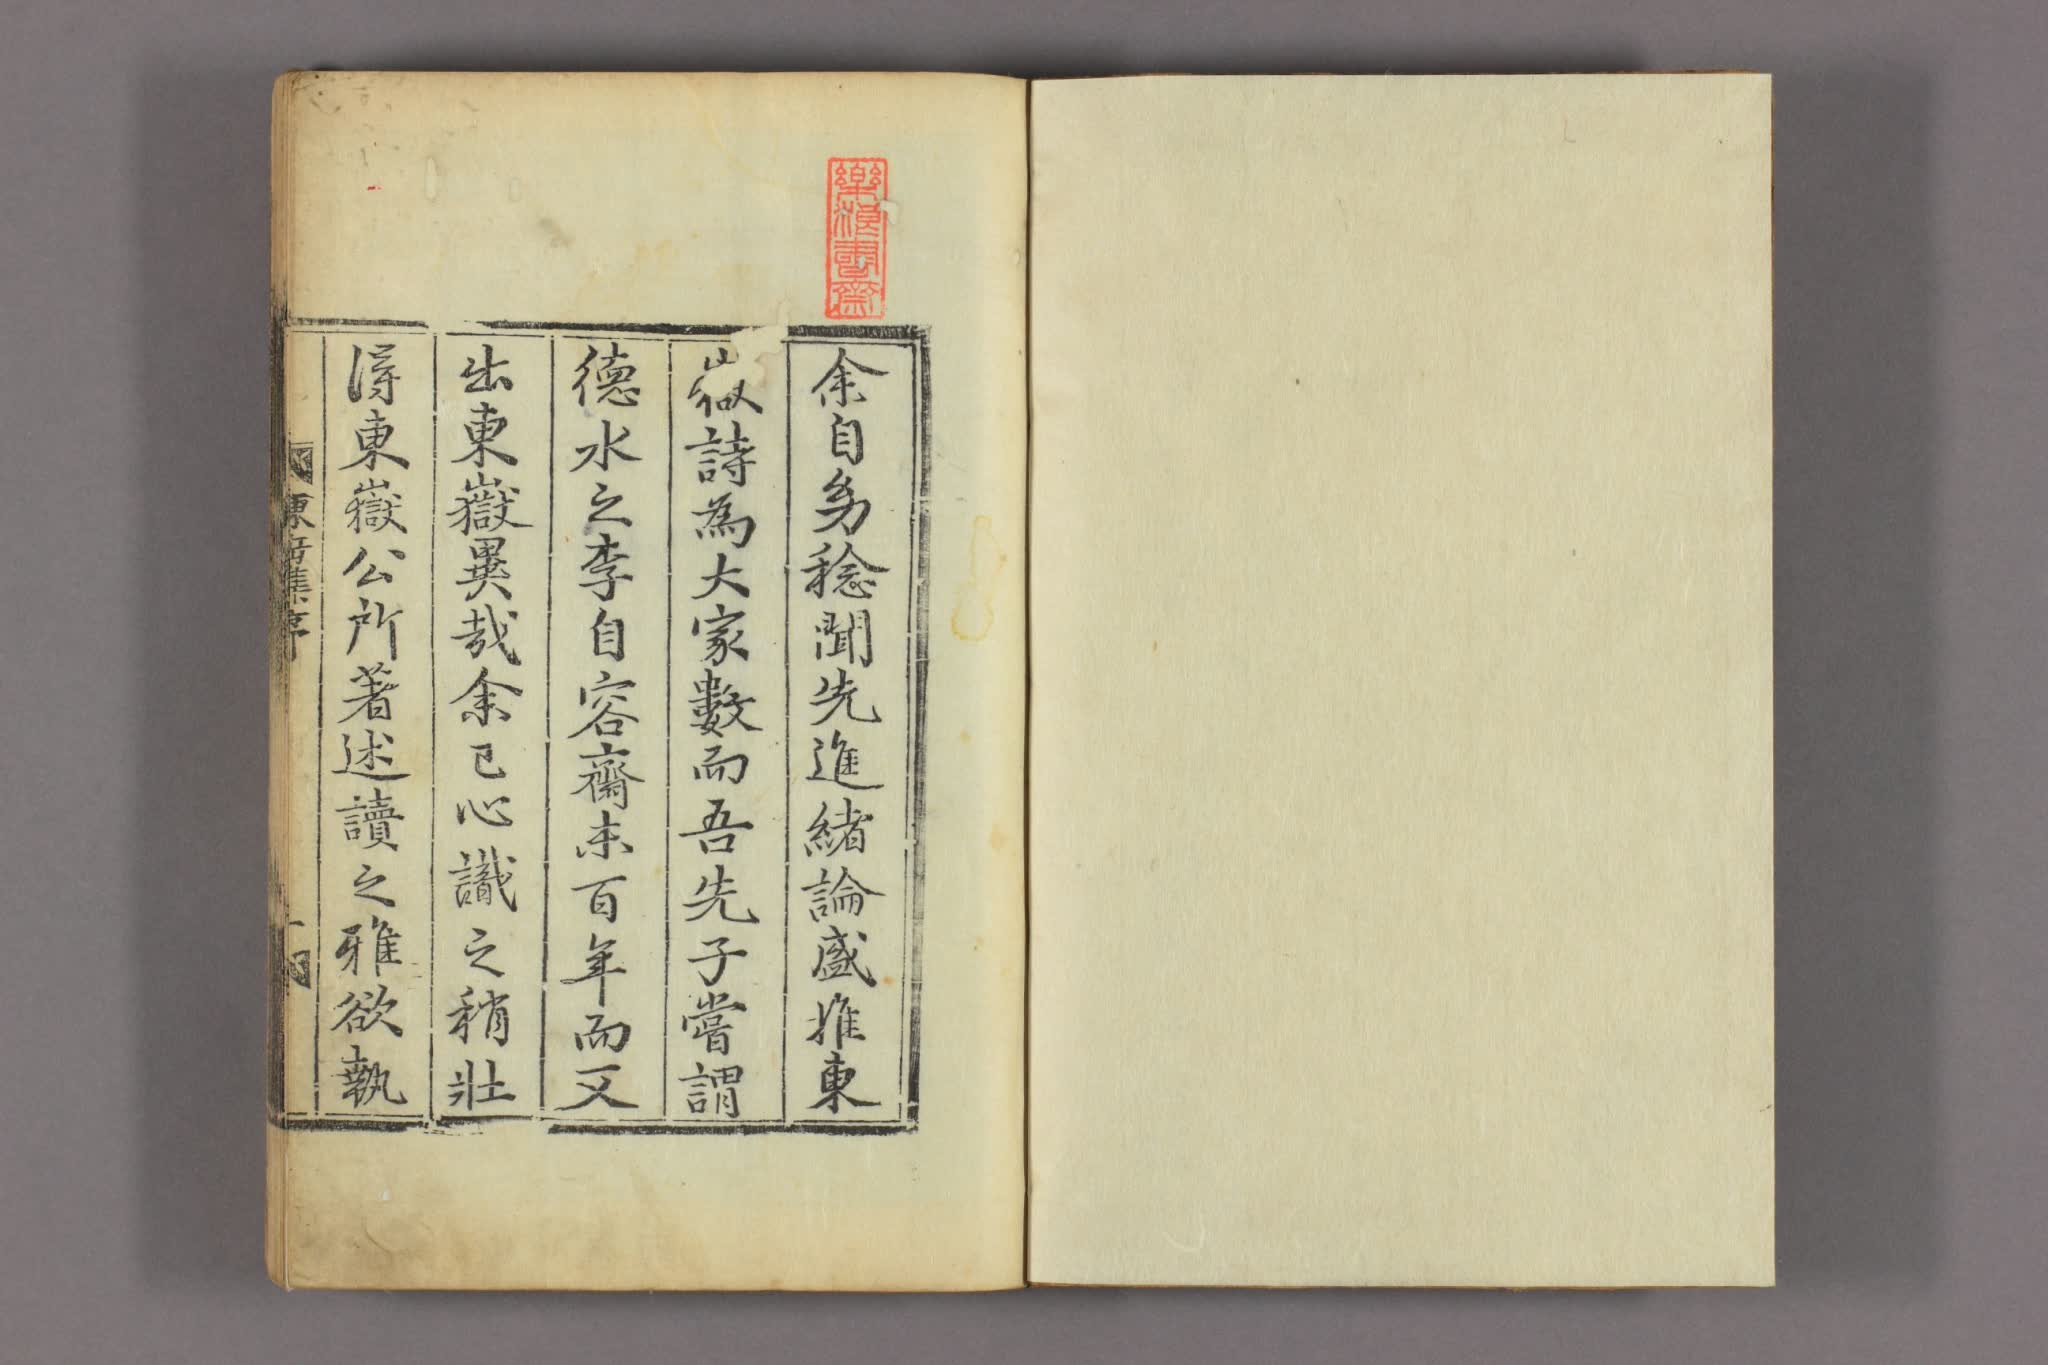 樂浪書齋
余自幼稔聞先進緒論盛推東
嶽詩為大家數而吾先子嘗謂
德水之李自容齋未百年而又
出東嶽異哉余已心識之稍壯
得東嶽公所著述讀之雅欲執
東岳集序
一